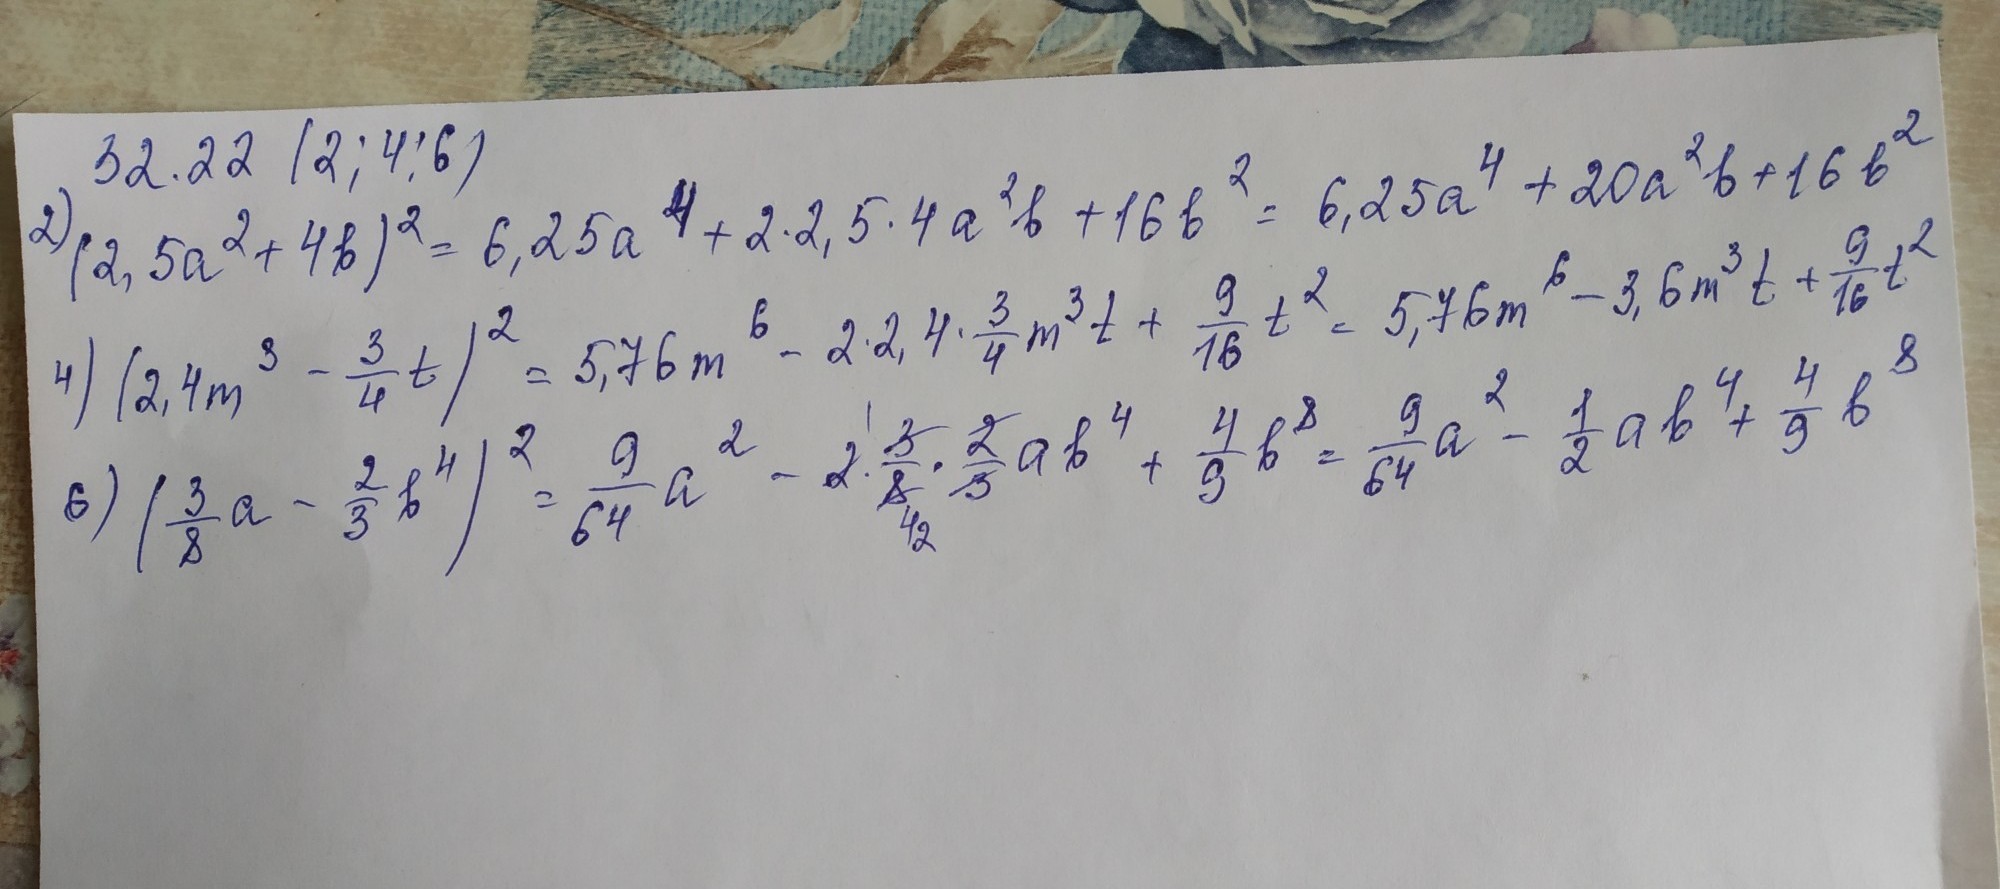 32.22 (2; 4; 6)
2) (2,5a² + 4b)² = 6,25a⁴ + 2·2,5·4a²b + 16b² = 6,25a⁴ + 20a²b + 16b²
4) (2,4m³ - 3/4 t)² = 5,76m⁶ - 2·2,4·3/4 m³t + 9/16 t² = 5,76m⁶ - 3,6m³t + 9/16 t²
6) (3/8 a - 2/3 b⁴)² = 9/64 a² - 2·3/8·2/3 ab⁴ + 4/9 b⁸ = 9/64 a² - 1/2 ab⁴ + 4/9 b⁸